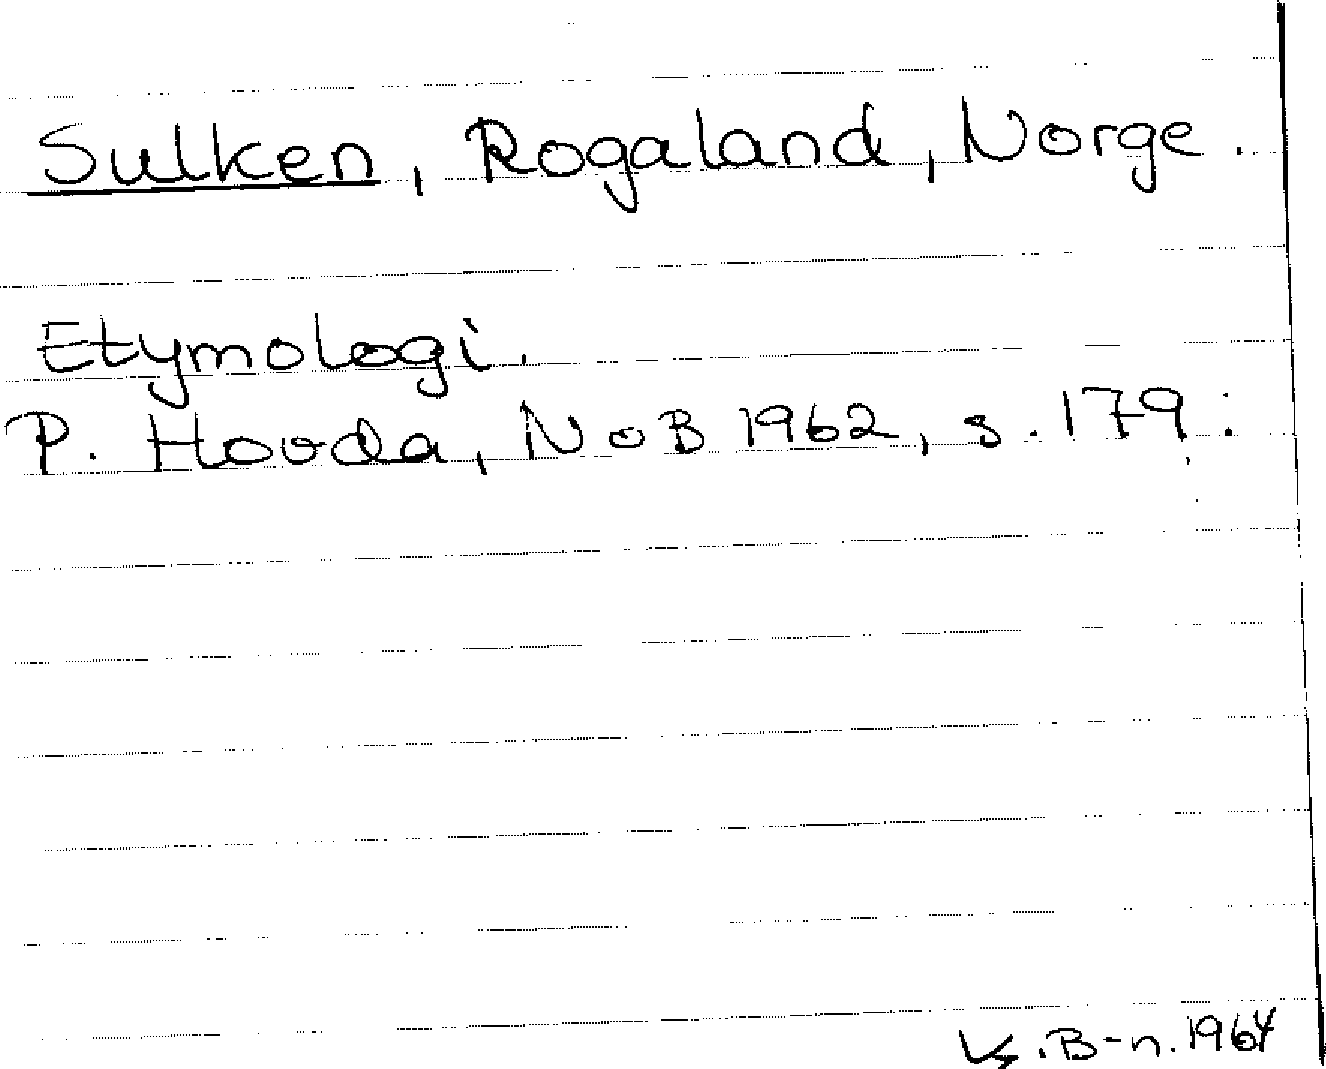 Sulken, Rogaland, Norge.
Etymologi.
P. Hovda, NoB 1962, s. 179:
B-n. 1964